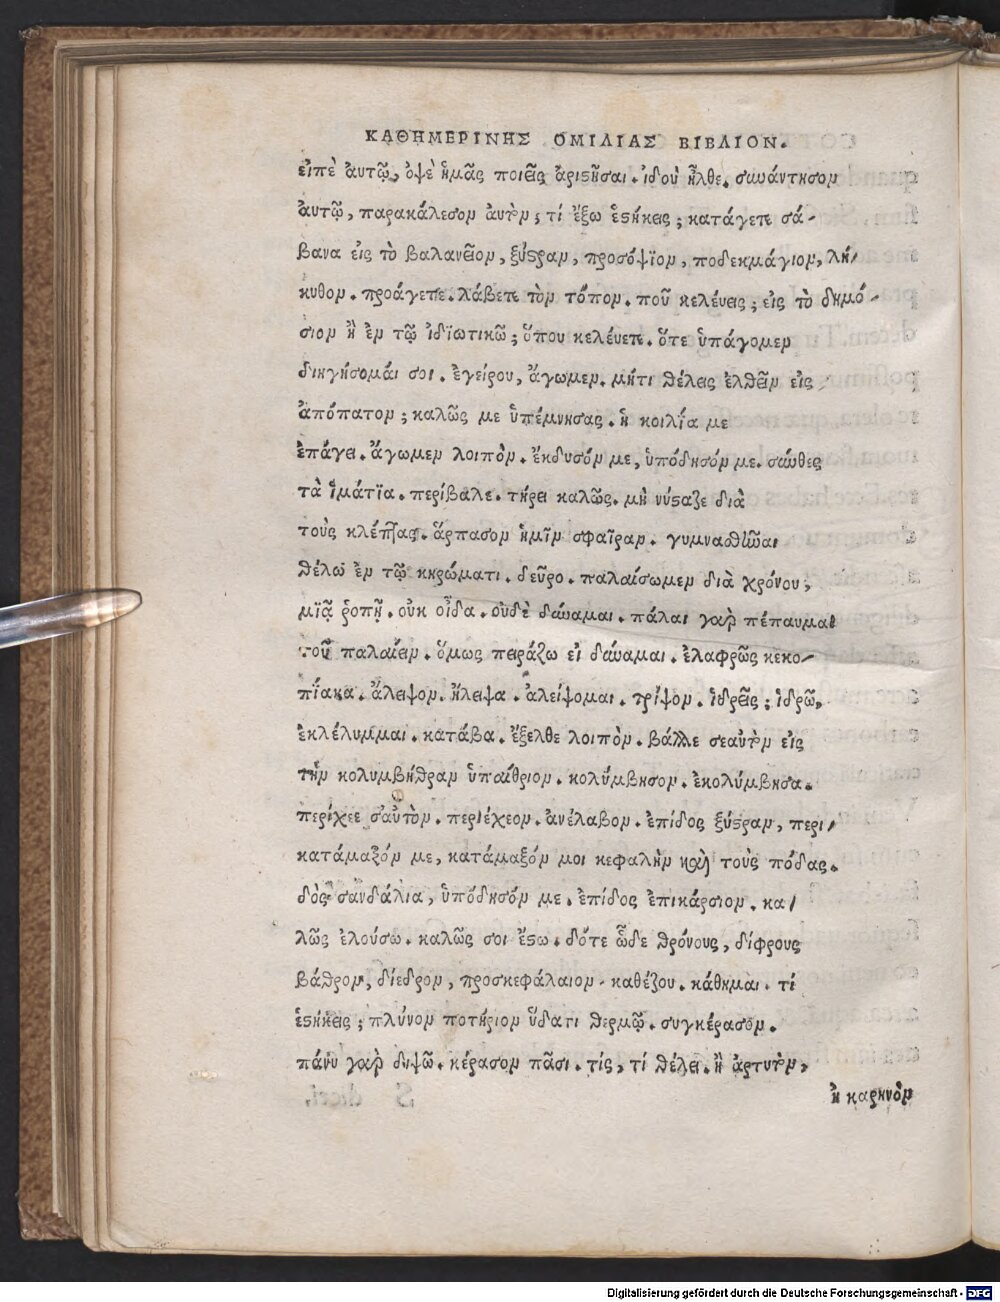 ΚΑΘΗΜΕΡΙΝΗΣ ΟΜΙΛΙΑΣ ΒΙΒΛΙΟΝ.
εἰπὲ αὐτῷ, ὀψὲ ἡμᾶς ποιεῖς ἀριϛῆσαι. ἰδοὺ ἦλθε. συνάντησον
αὐτῷ, παρακάλεσον αὐτὸν; τί ἔξω ἑϛήκεις; κατάγετε σά-
βανα εἰς τὸ βαλανεῖον, ξύϛραν, προσόψϊον, ποδεκμάγιον, λή-
κυθον. προάγετε. λάβετε τὸν τόπον. ποῦ κελέυεις; εἰς τὸ δημό-
σιον ἢ ἐν τῷ ἰδϊωτικῶ; ὅπου κελέυετε. ὅτε ὑπάγομεν
διηγήσομάι σοι. ἐγείρου, ἄγωμεν. μήτι θέλεις ἐλθεῖν εἰς
ἀπόπατον; καλῶς με ὑπέμνησας. ἡ κοιλΐα με
ἐπάγει. ἄγωμεν λοιπὸν. ἔκδυσόν με, ὑπόδησόν με. σύνθες
τὰ ἱμάτϊα. περίβαλε. τήρει καλῶς. μὴ νύϛαζε διὰ
τοὺς κλέπτας. ἅρπασον ἡμῖν σφαῖραν. γυμνασθῆναι
θέλω ἐν τῷ κηρώματι. δεῦρο. παλαίσωμεν διὰ χρόνου;
μϊᾷ ῥοπῇ. οὐκ οἶδα. οὐδὲ δύναμαι. πάλαι γὰρ πέπαυμαι
τοῦ παλαίειν. ὅμως πειράζω εἰ δύναμαι. ἐλαφρῶς κεκο-
πΐακα. ἄλειψον. ἤλειψα. ἀλείψομαι. τρίψον. ἱδρεῖς; ἱδρῶ,
ἐκλέλυμμαι. κατάβα. ἔξελθε λοιπὸν. βάλλε σεαυτὸν εἰς
τὴν κολυμβήθραν ὑπαίθριον. κολύμβησον. ἐκολύμβησα.
περίχεε σἀυτὸν. περιέχεον. ἀνέλαβον. ἐπίδος ξύϛραν, περι-
κατάμαξόν με, κατάμαξόν μοι κεφαλὴν καὶ τοὺς πόδας.
δὸς σανδάλια, ὑπόδησόν με. ἐπίδος ἐπικάρσιον. κα-
λῶς ἐλούσω. καλῶς σοι ἔϛω. δότε ὧδε θρόνους, δίφρους
βάθρον, δίεδρον, προσκεφάλαιον. καθέζου. κάθημαι. τί
ἑϛήκεις; πλύνον ποτήριον ὕδατι θερμῷ. συγκέρασον.
πάνυ γὰρ διψῶ. κέρασον πᾶσι. τίς, τί θέλει. ἢ ἀρτυτὸν,
ἢ καρηνὸν